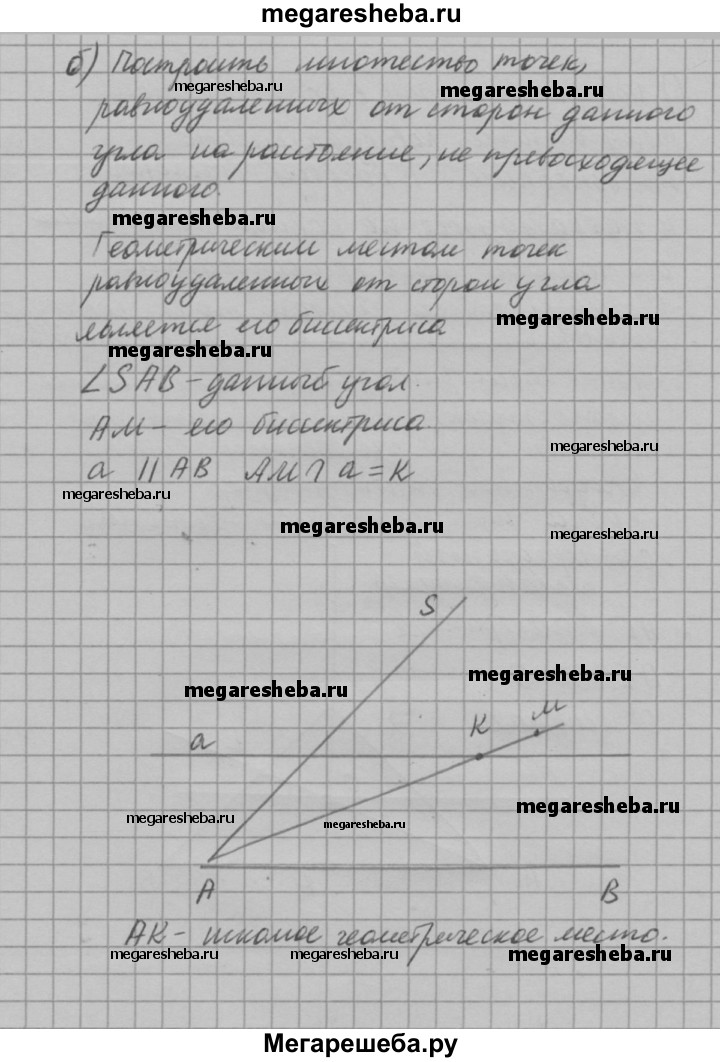 megaresheba.ru
б) Построить множество точек,
megaresheba.ru
megaresheba.ru
равноудаленных от сторон данного
угла на расстояние, не превосходящее
данного.
megaresheba.ru
Геометрическим местом точек
равноудаленных от сторон угла
megaresheba.ru
является его биссектриса
megaresheba.ru
∠SAB – данный угол.
AM – его биссектриса.
megaresheba.ru
a || AB AM ∩ a = K
megaresheba.ru
megaresheba.ru
megaresheba.ru
S
megaresheba.ru
megaresheba.ru
a
K
M
megaresheba.ru
megaresheba.ru
megaresheba.ru
A
B
AK – искомое геометрическое место.
megaresheba.ru
megaresheba.ru
megaresheba.ru
Мегарешеба.ру